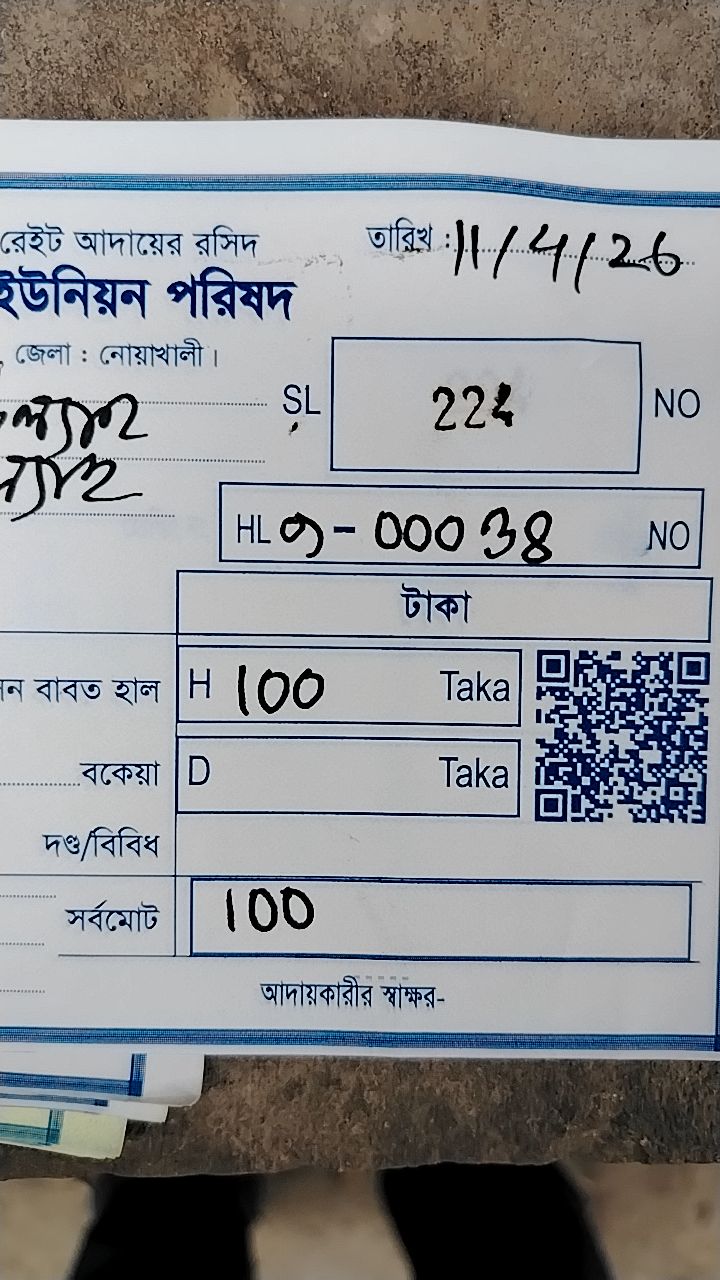 রেইট আদায়ের রসিদ
তারিখ : 11/4/26
ইউনিয়ন পরিষদ
জেলা : নোয়াখালী।
SL 224 NO
HL ৩-00038 NO
টাকা
বাবত হাল H 100 Taka
বকেয়া D Taka
দণ্ড/বিবিধ
সর্বমোট 100
আদায়কারীর স্বাক্ষর-